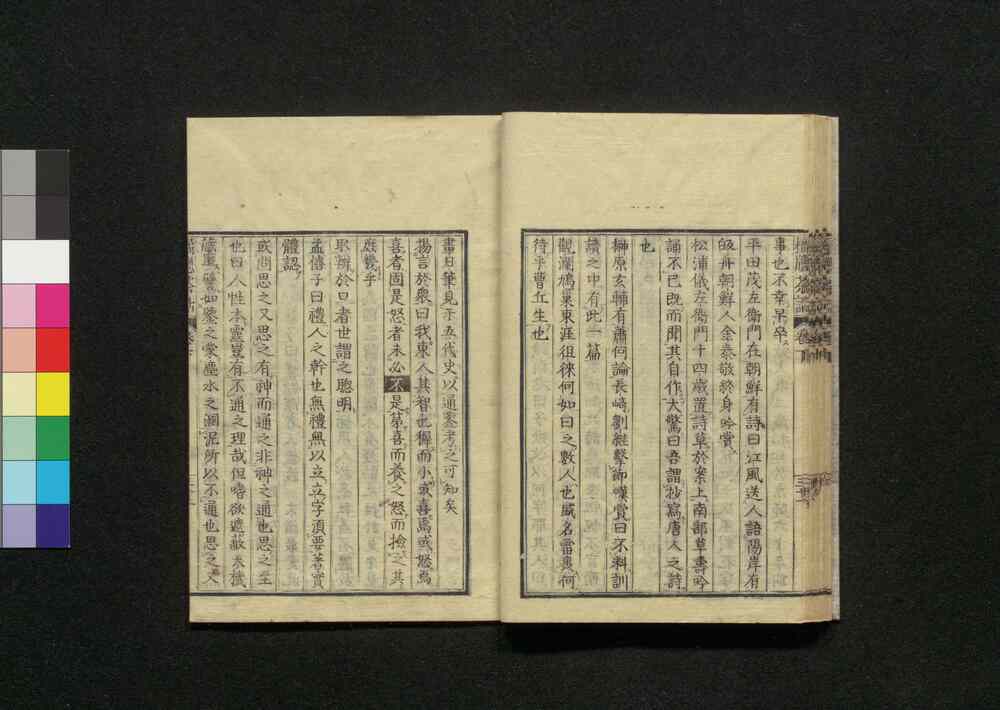 事也不幸早卒
平田茂左衛門在朝鮮有詩曰江風送人語隔岸有
皈舟朝鮮人金泰敬終身吟賞
松浦儀左衛門十四歲置詩草於案上南部草壽吟
誦不已既而聞其自作大驚曰吾謂抄寫唐人之詩
也
榊原玄輔有蕭何論長崎劉 擊節嘆賞曰不料訓
讀之中有此一篇
觀瀾鳩巢東涯徂徠何如曰之數人也威名雷轟何
待乎曹丘生也
書日筆見于五代史以通鑒考之可知矣
揚言於眾曰我東人其智也 而小或喜焉或怒焉
喜者固是怒者未必不是第喜而養之怒而撿之其
庶幾乎
取 於口者世謂之聰明
孟僖子曰禮人之幹也無禮無以立立字須要著實
體認
或問思之又思之有神而通之非神之通也思之至
也曰人性本靈豈有不通之理哉但嗜欲遮蔽天機
 重譬如鑒之蒙塵水之溷泥所以不通也思之又